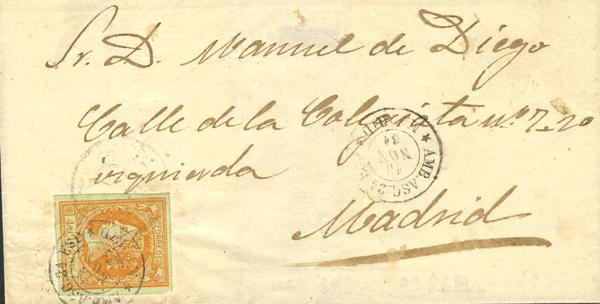 Sr. D. Manuel de Diego
Calle de la Colegiata nº 7-2º
izquierda
Madrid
AMB. ASC. 2
NOV
61
CORREOS